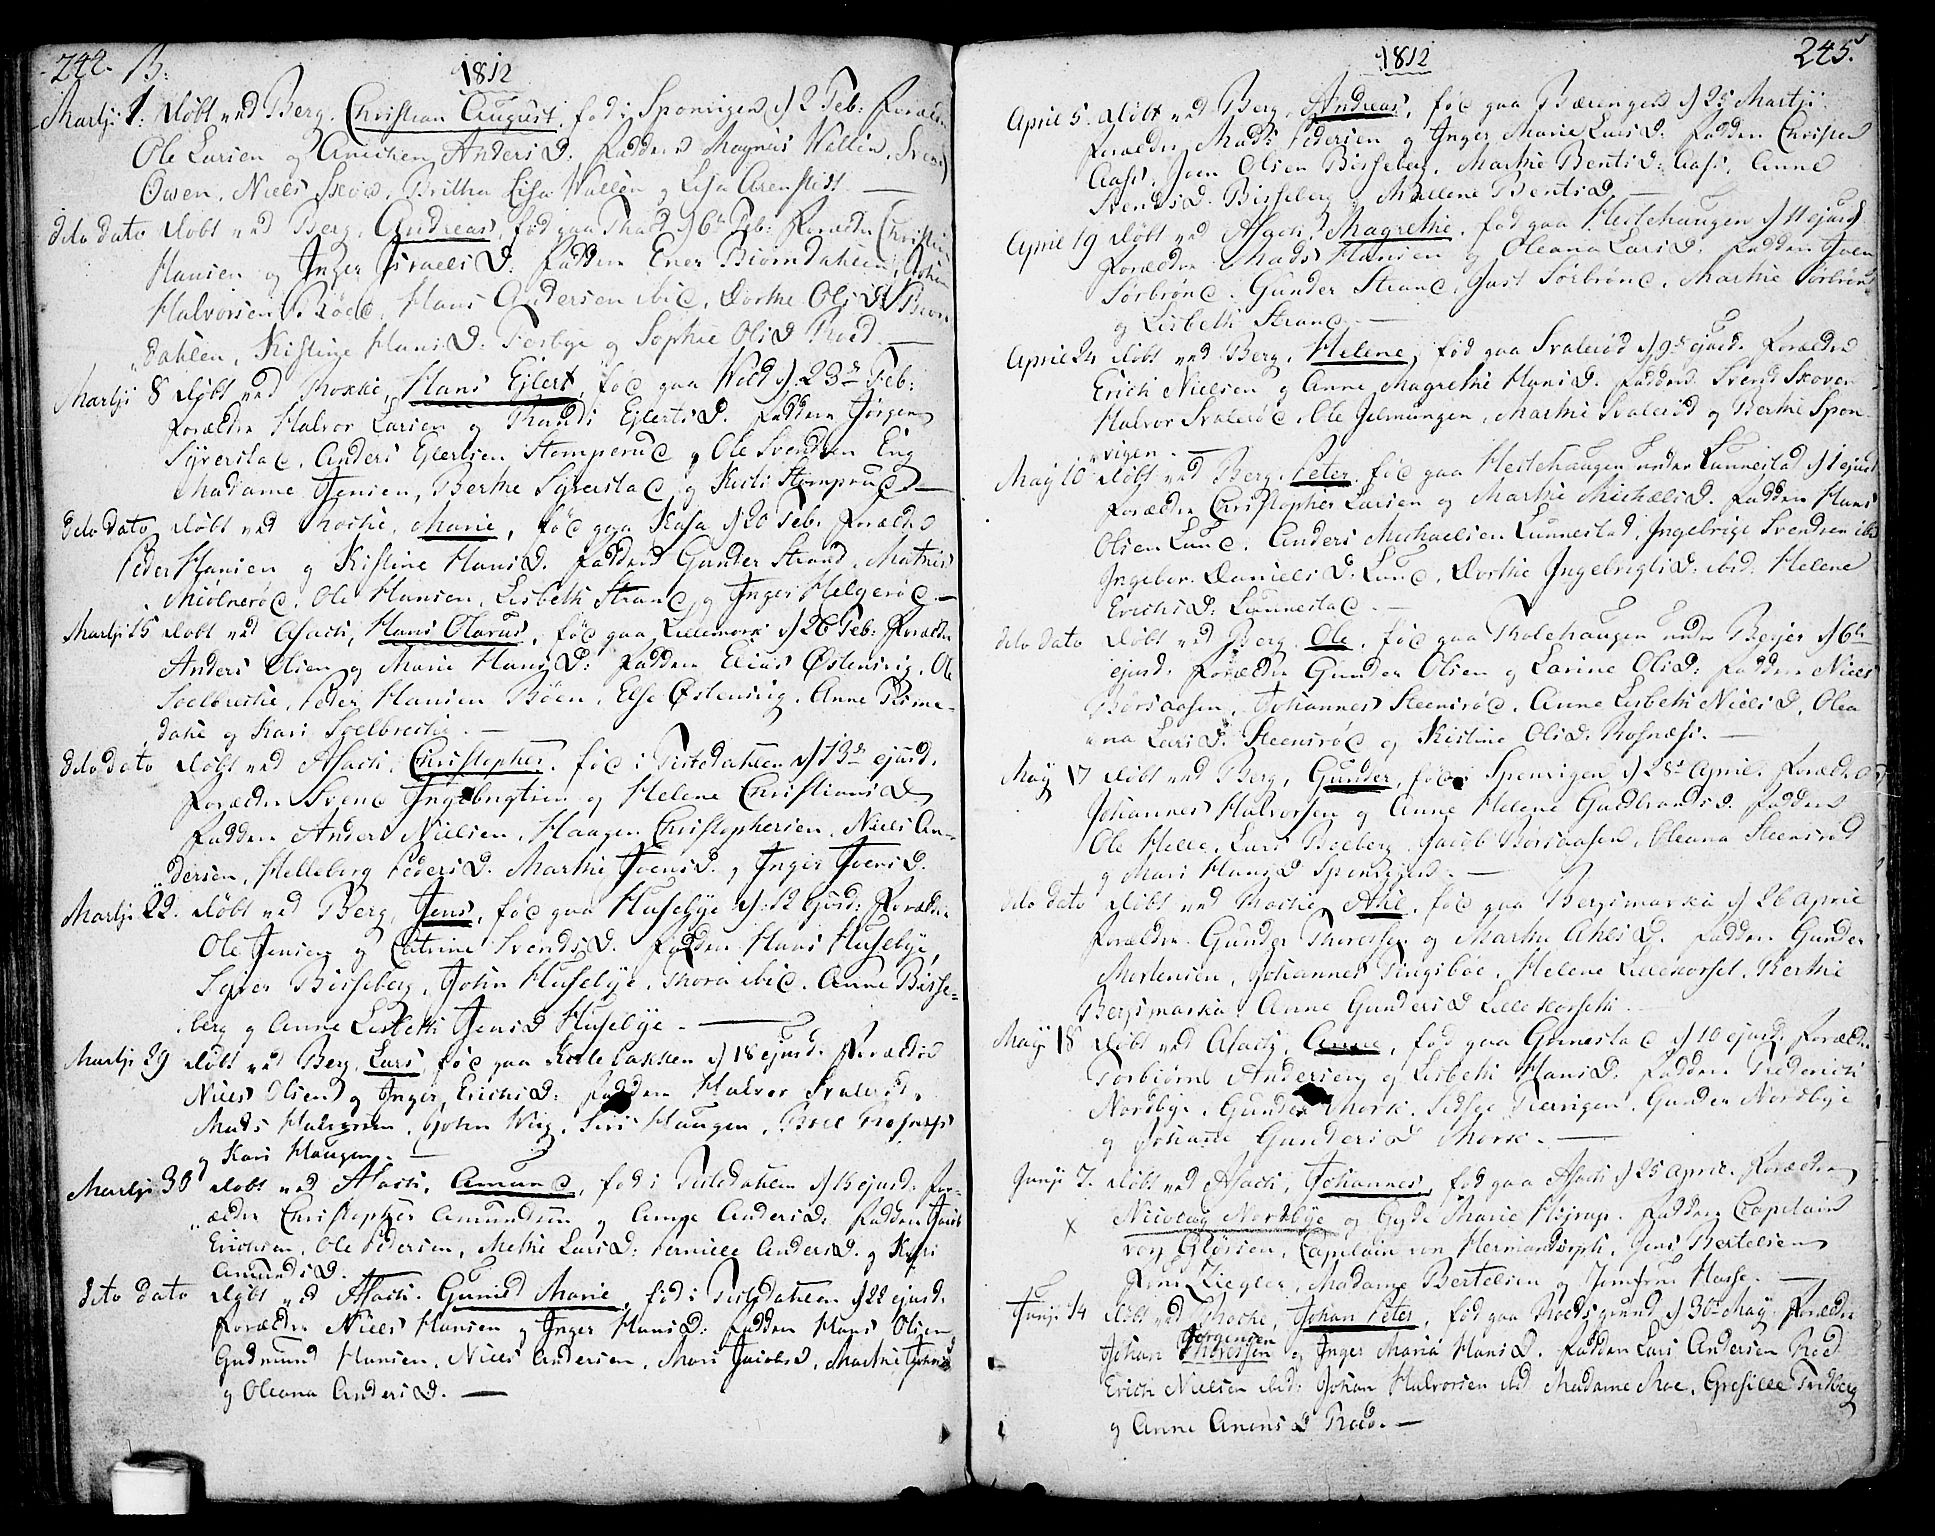 242. B.
1812
Martji 1. døbt ved Berg, Christian August, fød i Sponvigen d 2 Feb: Forældre
Ole Larsen og Anichen AndersD: Faddere Magnus Wallin, Svend
Owen, Niels Skow, Britha Lisa Wallin og Lisa
dito dato døbt ved Berg, Andreas, fød paa d 6te Feb: Forældre Christian
Hansen og Inger IsraelsD: Faddere Ener Biørndahlen, Johan
Halvorsen Röed, Hans Andersen ibid, Dorthe OlsD Biørn
dahlen, Kistine HansD: Torbye og Sophie OlsD Röed.
Martji 8 døbt ved Rokke, Hans Ejlert, fød paa Wold d. 23de Feb:
Forældre Halvor Larsen og Randi EjlertsD. Faddere Jørgen
Syverstad, Anders Ejlertsen Stomperud og Ole Svendsen Eng
Madame Jensen, Berthe Syverstad og Kirsti Stomprud
dito dato døbt ved Rokke, Marie, fød paa Kasa d 20 Feb: Forældre
Peder Hansen og Kistine HansD. Faddere Gunder Strand, Mathis
Miølnerød, Ole Hansen, Lisbeth Strand og Inger Helgerød.
Martji 15 døbt ved Asach, Hans Olavus, fød paa Lillemork d 26 Feb: Forældre
Anders Olsen og Marie HansD: Faddere Elias Østensvig, Ole
Soelbrekke, Peder Hansen Böen, Else Østensvig, Anne
dahl og Kari Soelbrekke.
dito dato døbt ved Asach, Christopher, fød i Tistedahlen d 13de ejusd.
Forældre Svend Ingebrigtsen og Helene ChristiansD.
Faddere Anders Nielsen, Haagen Christophersen, Niels An-
dersen, Helleborg PedersD. Marthe JoensD. og Inger JoensD.
Martji 22. døbt ved Berg, Jens, fød paa Husebye d. 12 ejusd: Forældre
Ole Jensen og Catrine SvendsD. Faddere Hans Husebye,
Syver Bisseberg, John Husebye, Thora ibid. Anne Bisse-
berg og Anne Lisbeth JensD Husebye.
Martji 29 døbt ved Berg, Lars, fød paa Kollebakken d 18 ejusd. Forældre
Niels Olsen og Inger ErichsD: Faddere Halvor Svalerød,
Mads Halvorsen, John Wiig, Siri Haugen,
og Kari Haugen.
Martji 30 døbt ved Asach, Amund, fød i Tistedahlen d 15 ejusd. For-
ældre Christopher Amundsen og Anne AndersD: Faddere Jacob
Erichsen, Ole Pedersen, Methe LarsD: Pernille AndersD. og Kari
AmundsD.
dito dato døbt ved Asach. Gunild Marie, fød i Tistedahlen d 22 ejusd.
Forældre Niels Hansen og Inger HansD: Faddere Hans Olsen,
Gudmund Hansen, Niels Andersen, Mari JacobsD, Marthe
og Oleana AndersD.
1812
245.
April 5. døbt ved Berg, Andreas, fød paa Bærenges d 25 Martji.
Forældre Mads Pedersen og Inger Marie LarsD. Faddere Christen
Aass, Joen Olsen Bisseberg, Marthe BentsD: Aass, Anne
SvendsD. Bisseberg og Mallene BentsD.
April 19 døbt ved Asach, Magrethe, fød paa Hestehaugen d 11 ejusd.
Forældre Mads Hansen og Oleana LarsD. Faddere Joen
Sørbrönd, Gunder Strand, Just Sørbrönd, Marthe Sørbrönd
og Lisbeth Strand.
April 24 døbt ved Berg, Helene, fød paa Svalerød d 9de ejusd. Forældre
Erich Nielsen og Anne Magrethe HansD. Faddere Svend Skoven
Halvor Svalerød, Ole Jelmungen, Marthe Svalerød og Berthe Spon-
vigen.
May 10 døbt ved Berg, Peter, fød paa Hestehaugen under Lunnestad d 1 ejusd
Forældre Christopher Larsen og Marthe MichelsD. Faddere Hans
Olsen Lund, Anders Michaelsen Lunnestad, Ingebrigt Svendsen ibid
Ingebor. DanielsD. Lund, Dorthe IngebrigtsD: ibid. Helene
ErichsD: Lunnestad.
dito dato døbt ved Berg, Ole, fød paa Kolehaugen under Bejer d 6te
ejusd. Forældre Gunder Olsen og Larine OlsD: Faddere Niels
Börsaasen, Johannes Steensröd, Anne Lisbeth NielsD, Olea
na LarsD. Steensröd og Kistine OlsD. Rosnæss.
May 17 døbt ved Berg, Gunder, fød i Sponvigen d 28de April. Forældre
Johannes Halvorsen og Anne Helene GudbrandsD. Faddere
Ole Helle, Lars Beeberg, Jacob Börsaasen, Oleana Steensröd
og Mari HansD Sponvigen.
dito dato døbt ved Rokke, Ahle, fød paa Bergsmarka d 26 April
Forældre Gunder Thoressen og Marthe AhlesD. Faddere Gunder
Mortensen, Johannes Tingsböe, Helene Lillekorset, Berthe
Bergsmarka Anne GundersD Lillekorseth.
May 18 døbt ved Asach, Anne, fød paa Gunnestad d 10 ejusd. Forældre
Torbiørn Andersen og Lisbeth HansD: Faddere Frederich
Nordbye, Gunder Mork, Gunder Nordbye
og Johanne GundersD Mork.
Junji 7. døbt ved Asach, Johannes, fød paa Asach d 25 April. Forældre
x Nicolay Nordbye og Gyde Marie Hiirup. Faddere Capitain
von Glörsen, Capitain von Hermansdorph, Jens Bertelsen,
Ziegler, Madame Bertelsen og Jomfrue Hasse.
Junji 14 døbt ved Rokke, Johan Peter, fød paa Roedsgrund d 30te May Forældre
Jørgensen
Johan Thoressen og Inger Maria HansD. Faddere Lars Andersen Röed
Erich Nielsen ibid: Johan Halvorsen ibid Madame Moe, Gresille Tordberg
og Anne AnensD Röed.